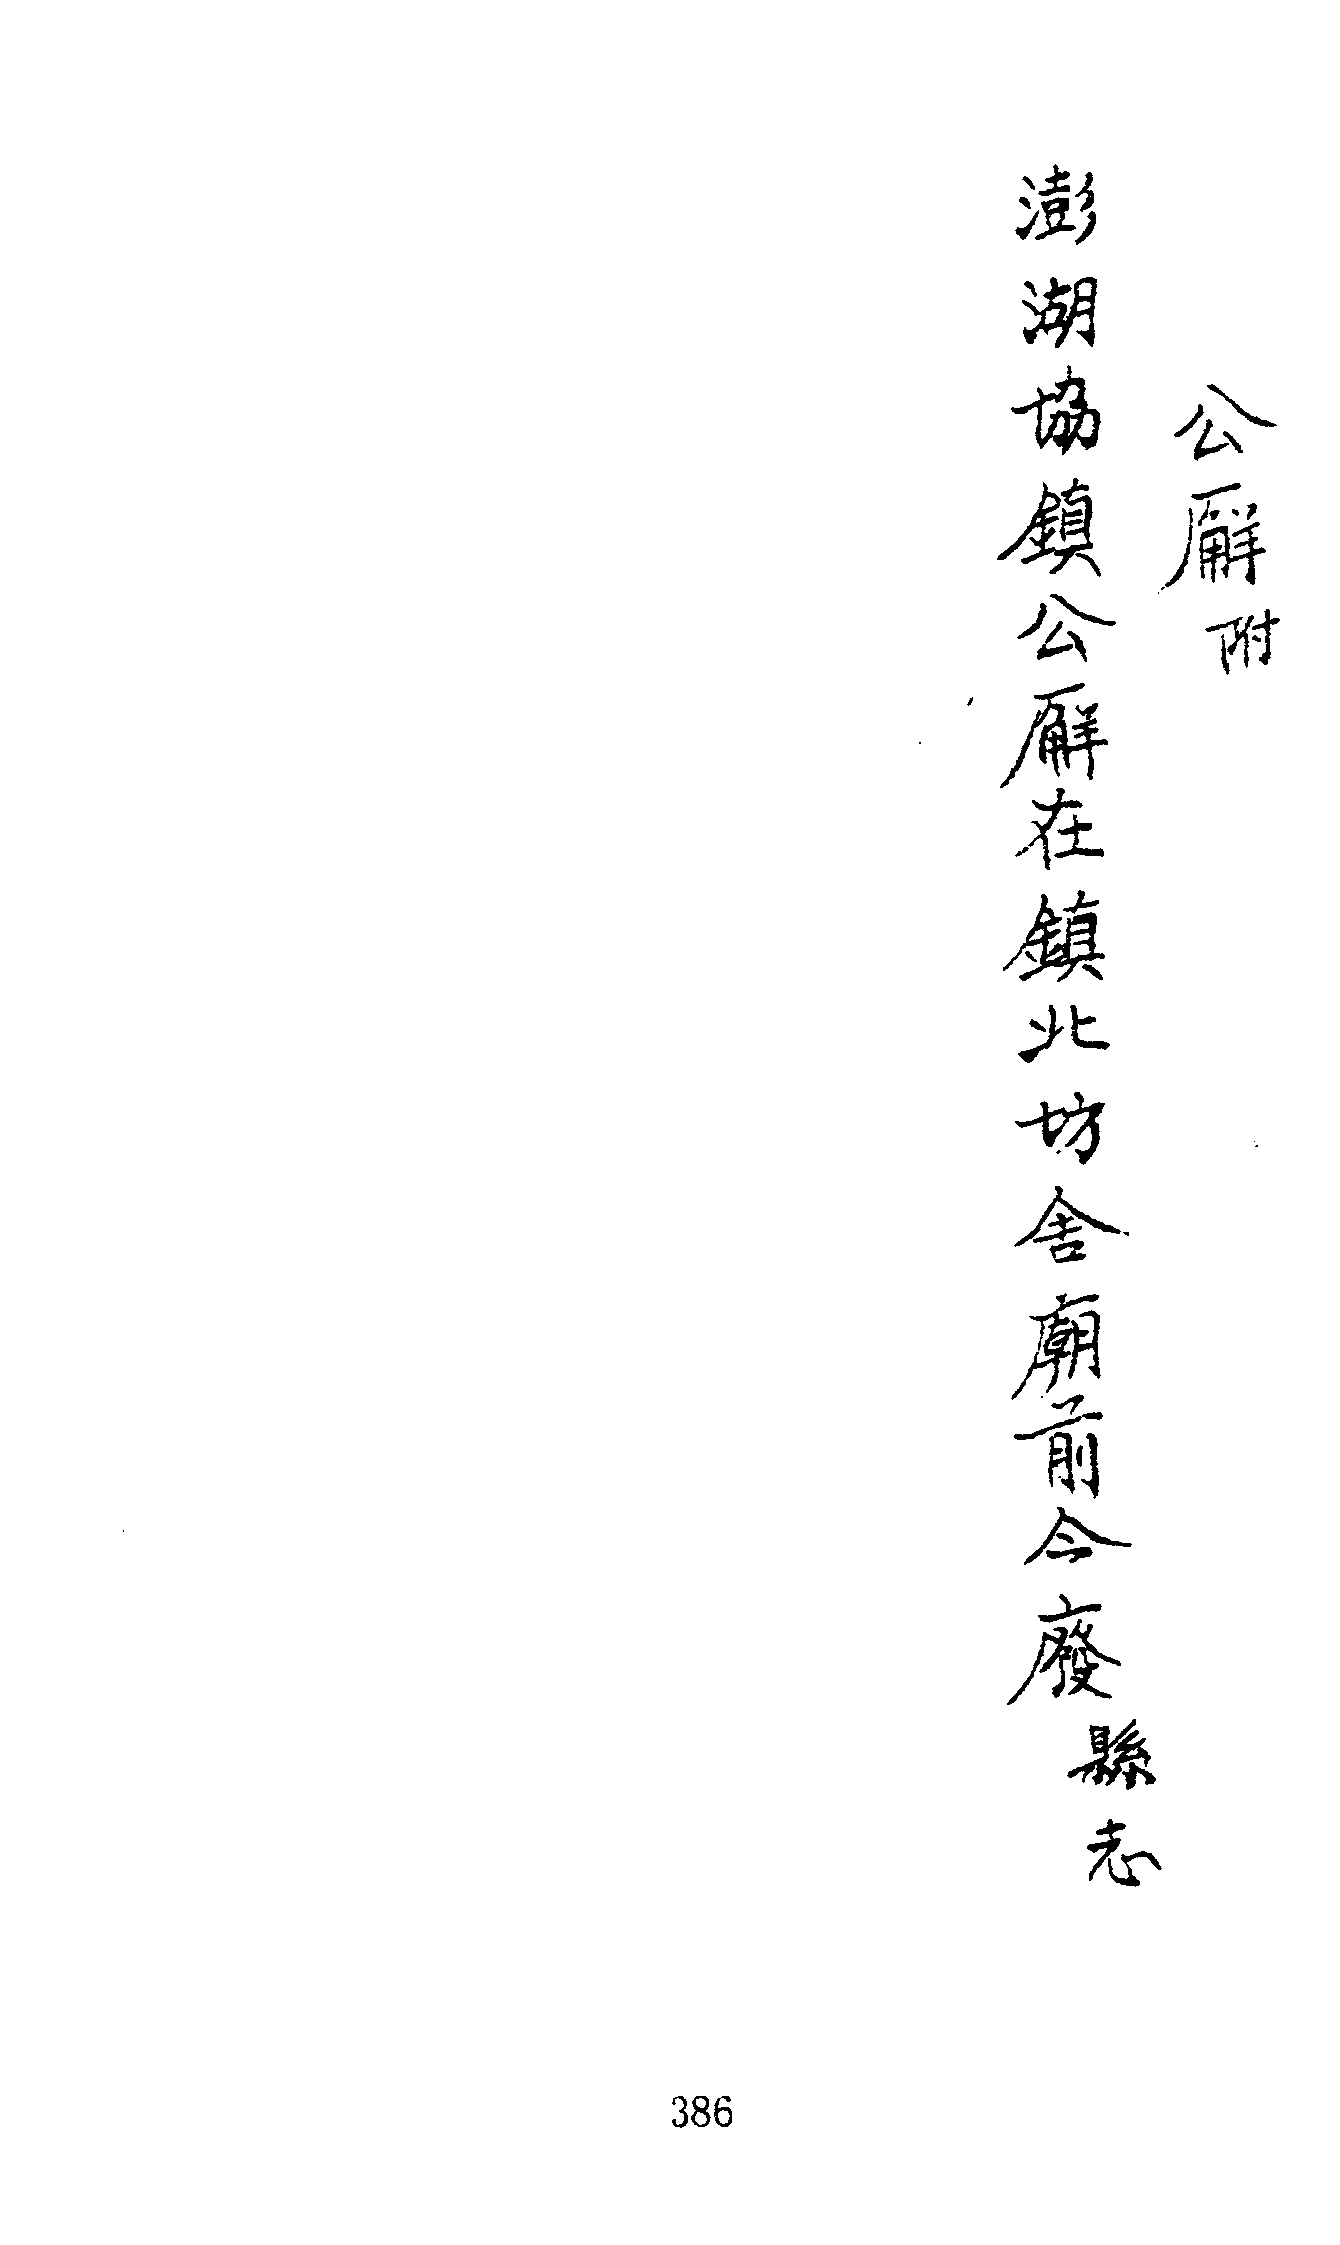 公廨附
澎湖協鎮公廨在鎮北坊舍廟前今廢縣志
386